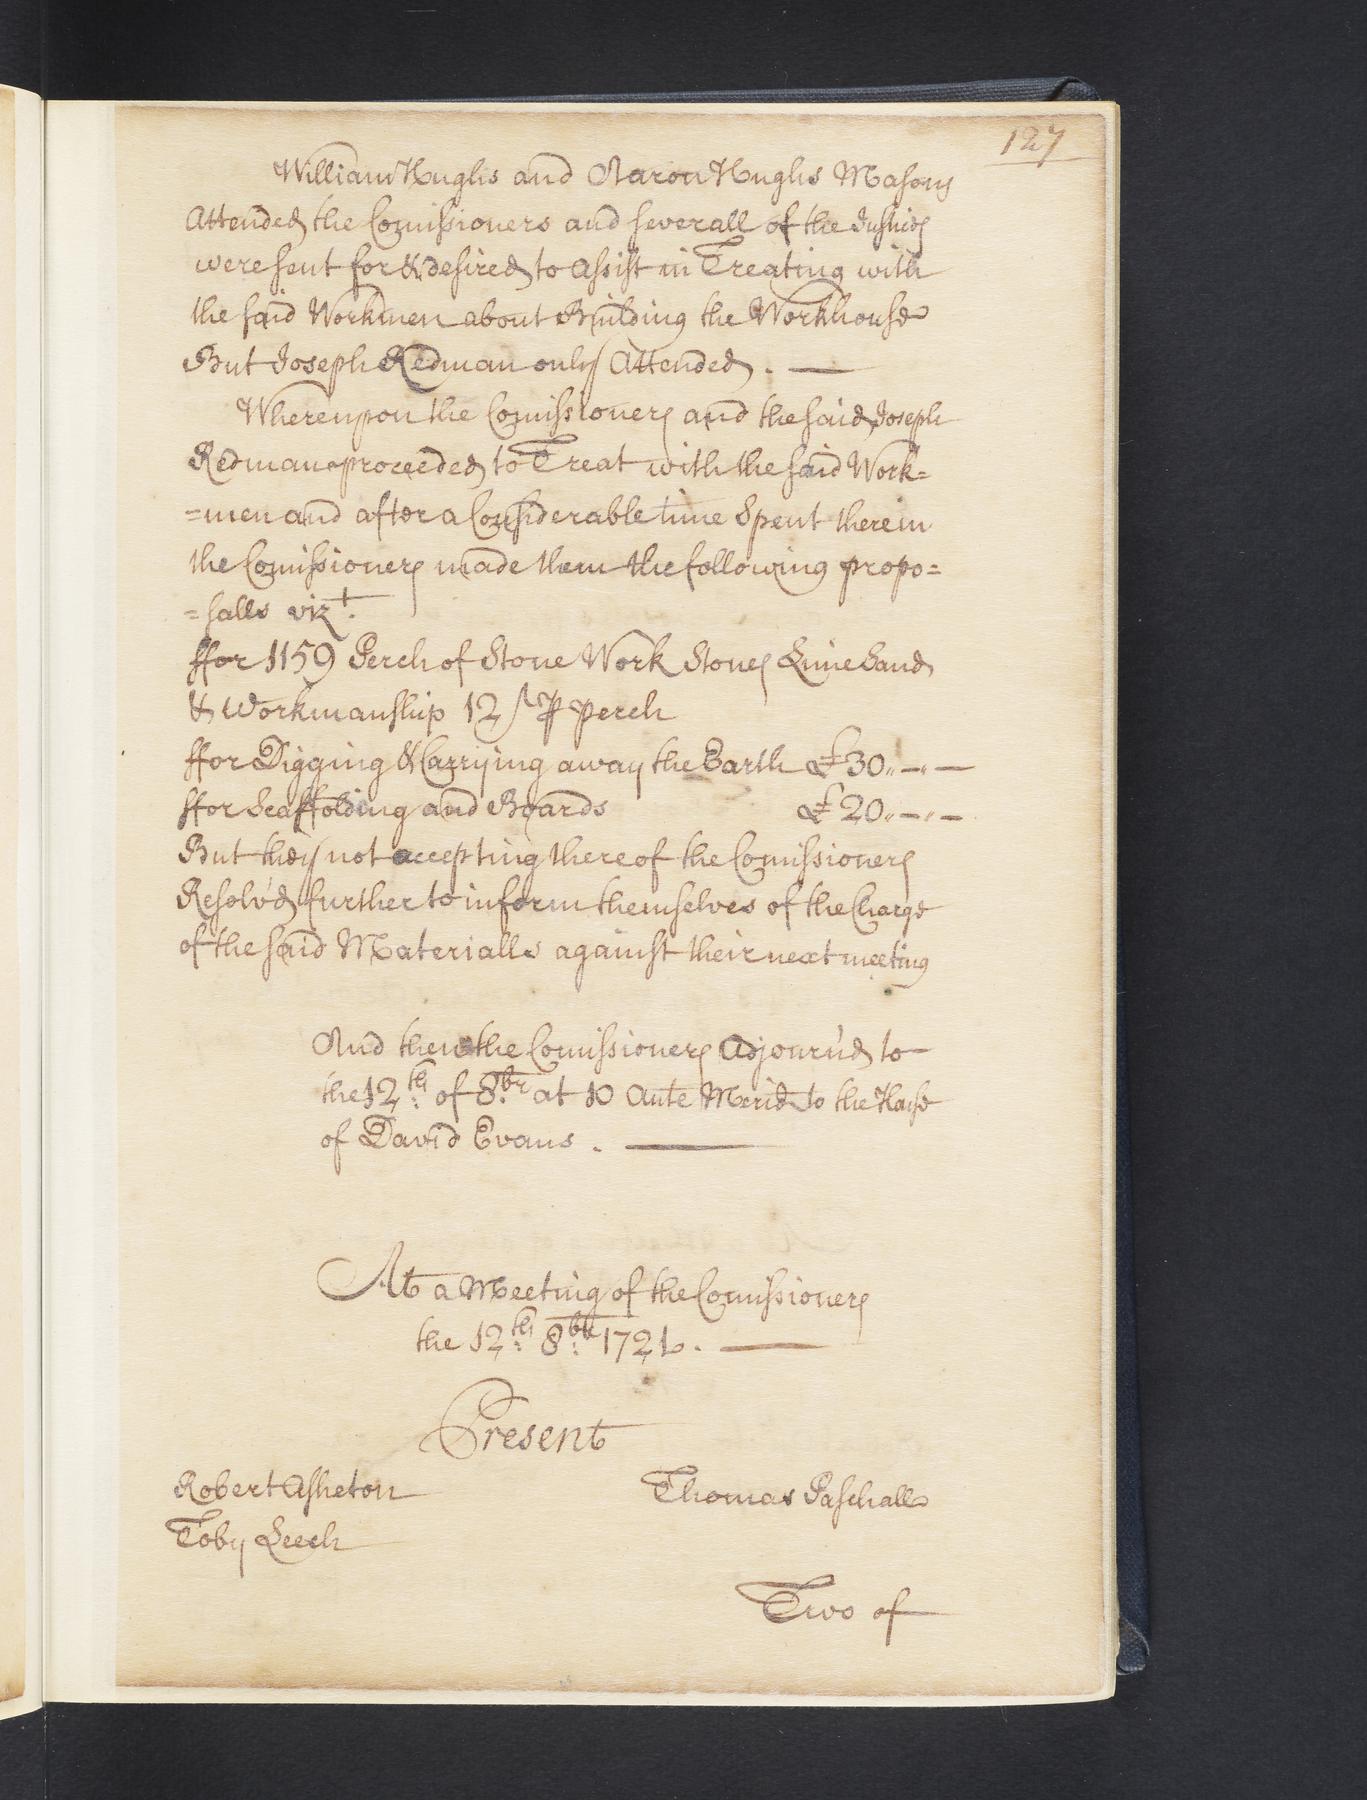 127
William Hughs and Aaron Hughs Masons
Attended the Comissioners and severall of the Justices
were sent for & desired to assist in Treating with
the said Workmen about Building the Workhouse
But Joseph Redman only Attended. —
Whereupon the Comissioners and the said Joseph
Redman proceeded to Treat with the said Work=
=men and after a Considerable time Spent therein
the Comissioners made them the following propo=
=salls vizt.
ffor 1159 Perch of Stone Work Stones Lime Sand
& Workmanship 12/ ⅌ perch
ffor Digging & Carrying away the Earth £30„—„—
ffor Scaffolding and Boards £20„—„—
But they not accepting thereof the Comissioners
Resolv'd further to inform themselves of the Charge
of the said Materialls against their next meeting
And then the Comissioners Adjourn'd to
the 12th. of 8br. at 10 Ante Merid. to the House
of David Evans. —
At a Meeting of the Comissioners
the 12th. 8br. 1721. —
Present
Robert Asheton Thomas Paschall
Toby Leech
Two of